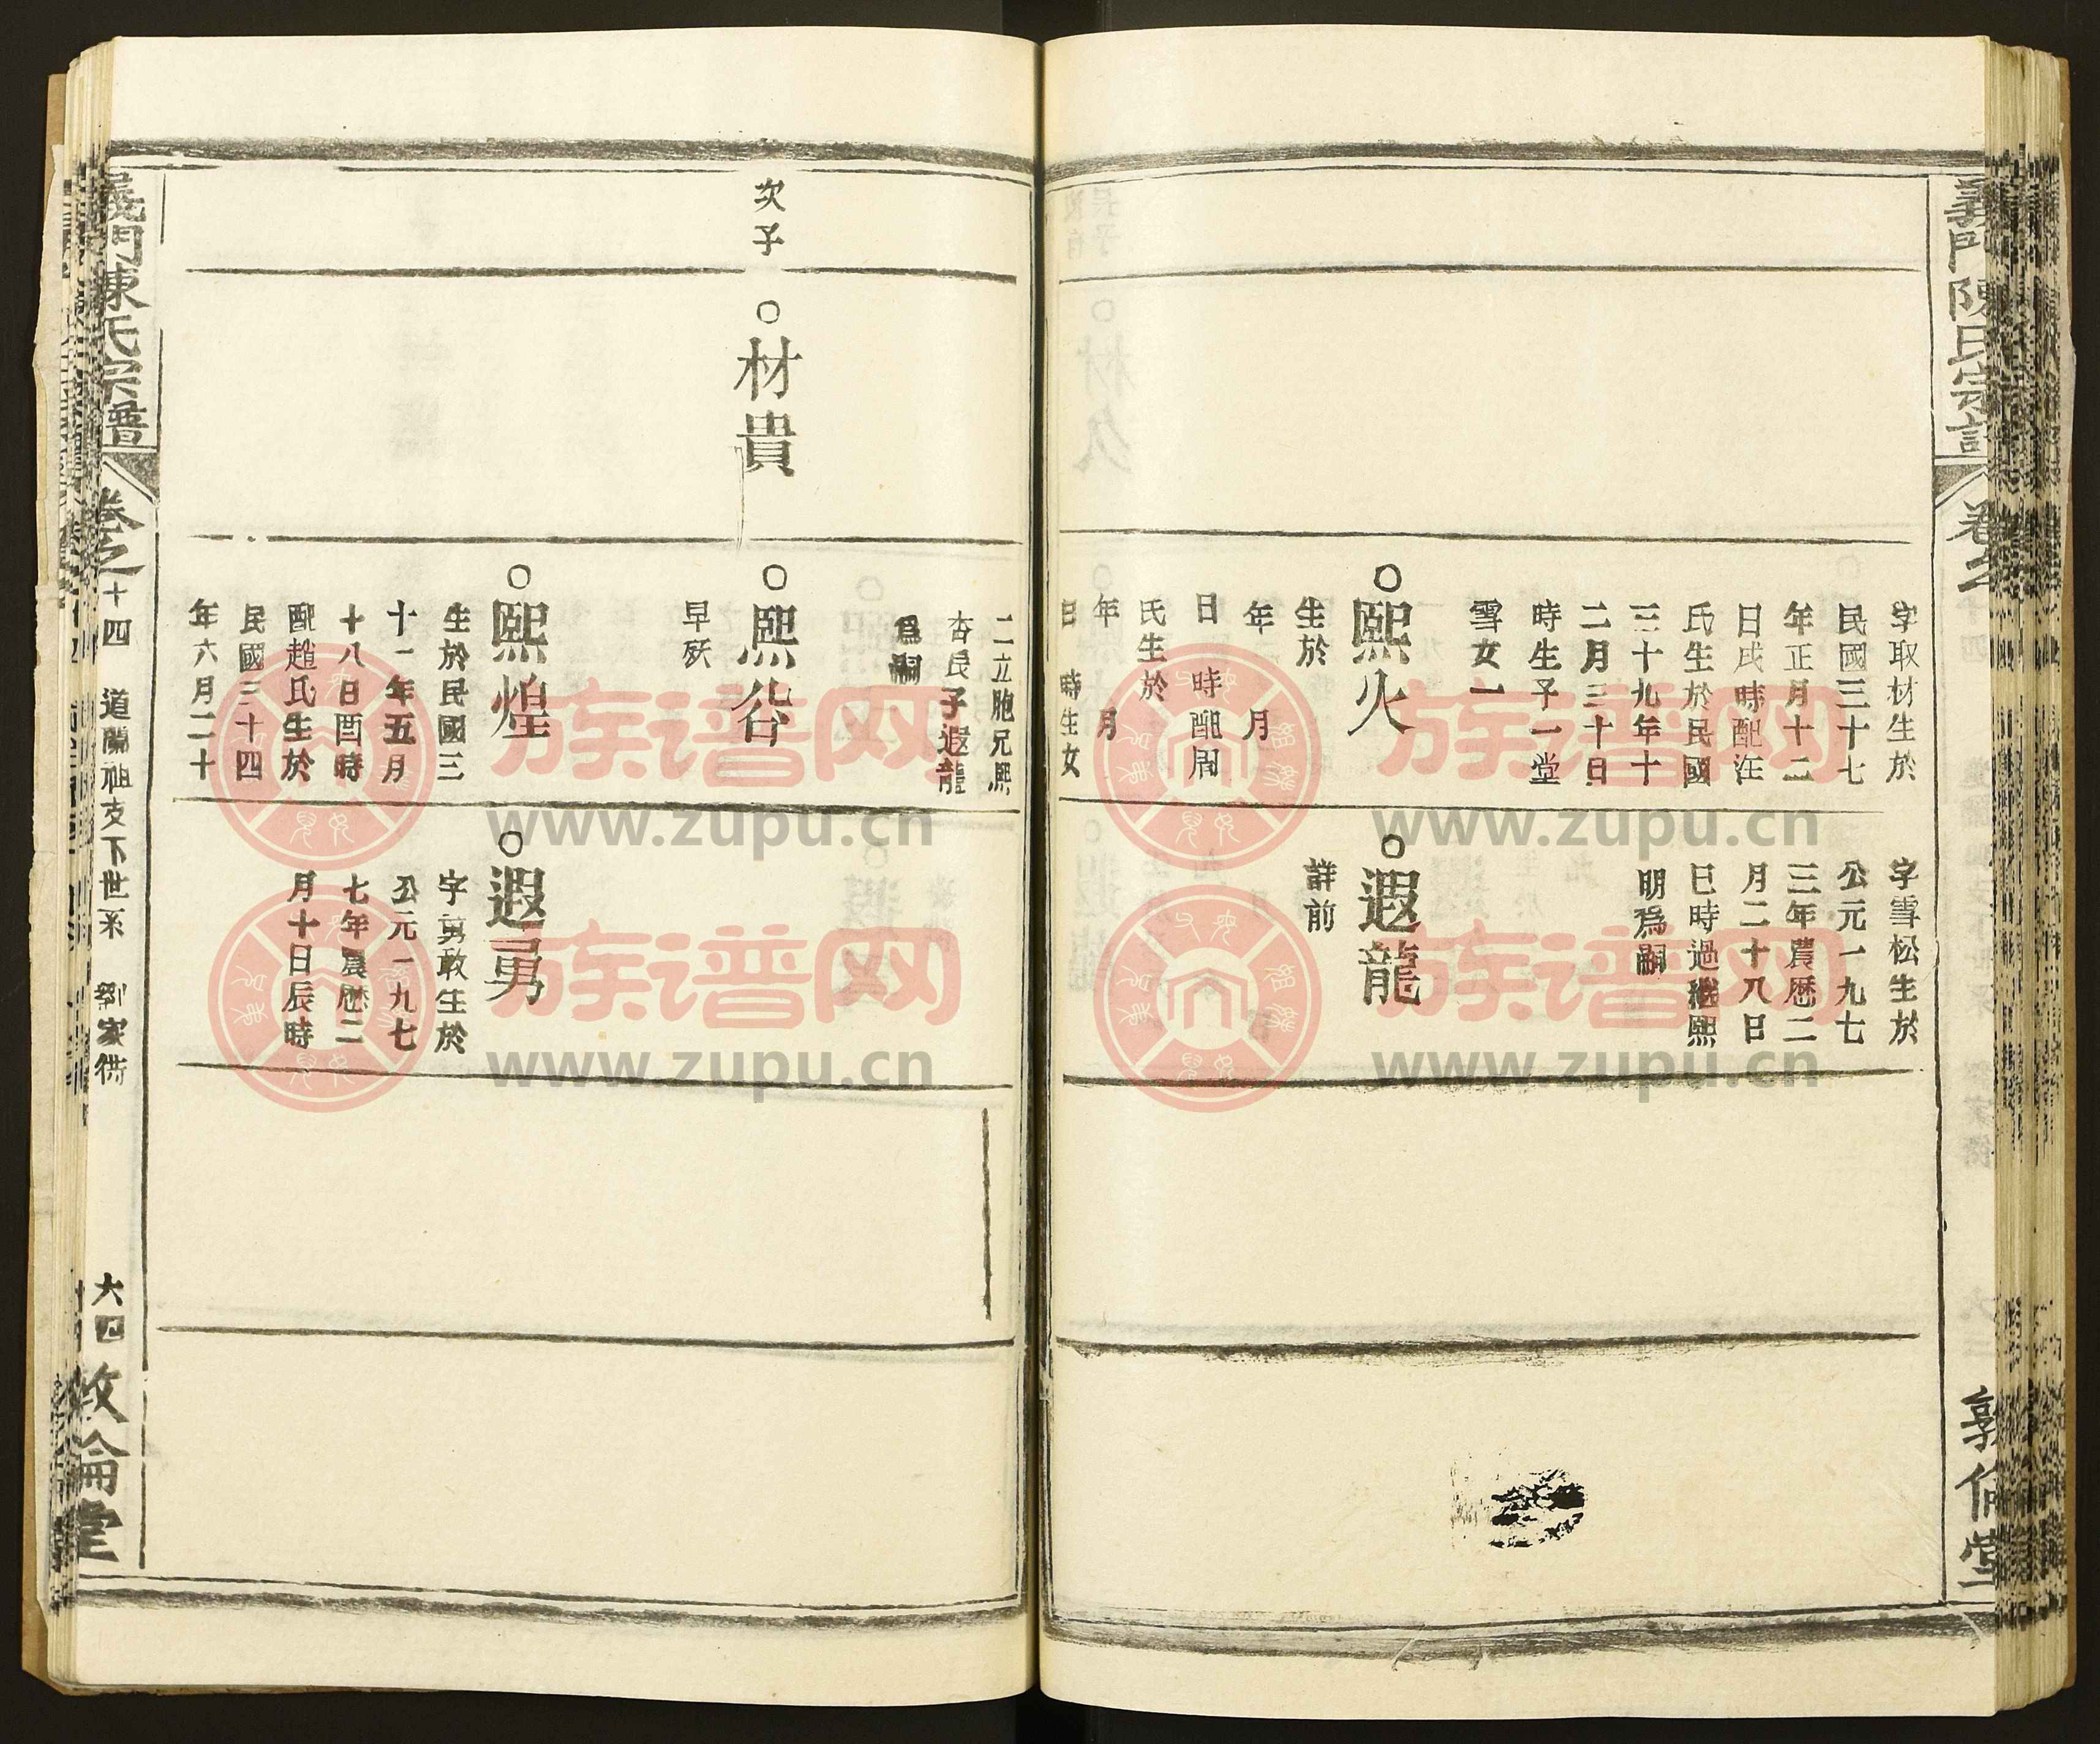 義門陳氏宗譜
卷之
敦倫堂
字取材生於
民國三十七
年正月十二
日戌時配汪
氏生於民國
三十九年十
二月三十日
時生子一堂
雪女一
○熙火
生於
年 月
日 時配周
氏生於
年 月
日 時生女
字雪松生於
公元一九七
三年農歷二
月二十八日
巳時過繼熙
明爲嗣
○遐龍
詳前
二立胞兄熙
杏良子遐龍
爲嗣
次子
○材貴
○熙谷
早殀
○熙煌
生於民國三
十一年五月
十八日酉時
配趙氏生於
民國三十四
年六月二十
○遐勇
字勇敢生於
公元一九七
七年農歷二
月十日辰時
義門陳氏宗譜
卷之十四
道蘭祖支下世系
劉家衖
六四
敦倫堂
族谱网
www.zupu.cn
族谱网
www.zupu.cn
族谱网
www.zupu.cn
族谱网
www.zupu.cn